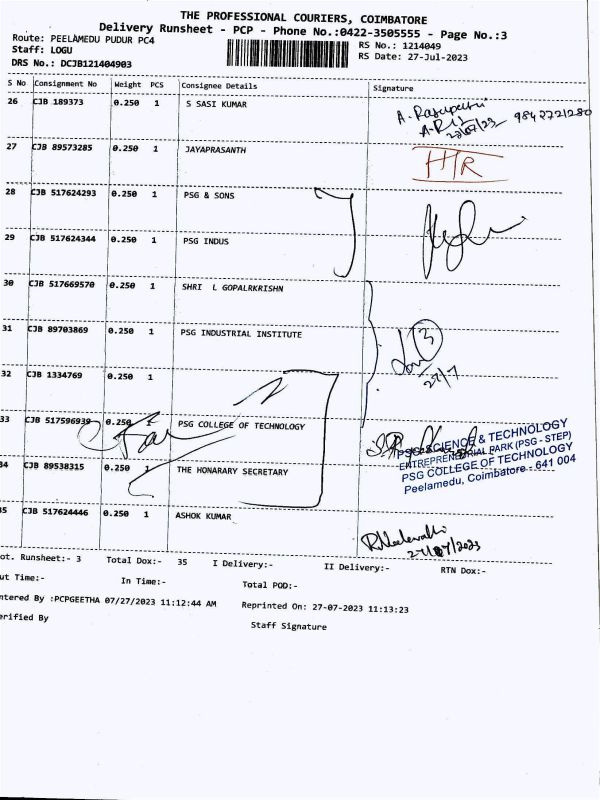 THE PROFESSIONAL COURIERS, COIMBATORE
Delivery Runsheet - PCP - Phone No.:0422-3505555 - Page No.:3
Route: PEELAMEDU PUDUR PC4
RS No.: 1214049
Staff: LOGU
RS Date: 27-Jul-2023
DRS No.: DCJB121404903
S No Consignment No Weight PCS Consignee Details Signature
26 CJB 189373 0.250 1 S SASI KUMAR
9842721280
27 CJB 89573285 0.250 1 JAYAPRASANTH H/R
28 CJB 517624293 0.250 1 PSG & SONS
29 CJB 517624344 0.250 1 PSG INDUS
30 CJB 517669570 0.250 1 SHRI L GOPALRKRISHN
31 CJB 89703869 0.250 1 PSG INDUSTRIAL INSTITUTE
3
27/7
32 CJB 1334769 0.250 1
33 CJB 517596939 0.250 1 PSG COLLEGE OF TECHNOLOGY
PSG-SCIENCE & TECHNOLOGY
ENTREPRENEURIAL PARK (PSG - STEP)
PSG COLLEGE OF TECHNOLOGY
Peelamedu, Coimbatore - 641 004
34 CJB 89538315 0.250 1 THE HONARARY SECRETARY
35 CJB 517624446 0.250 1 ASHOK KUMAR
27/07/2023
ot. Runsheet:- 3 Total Dox:- 35 I Delivery:- II Delivery:- RTN Dox:-
ut Time:- In Time:- Total POD:-
ntered By :PCPGEETHA 07/27/2023 11:12:44 AM Reprinted On: 27-07-2023 11:13:23
erified By Staff Signature